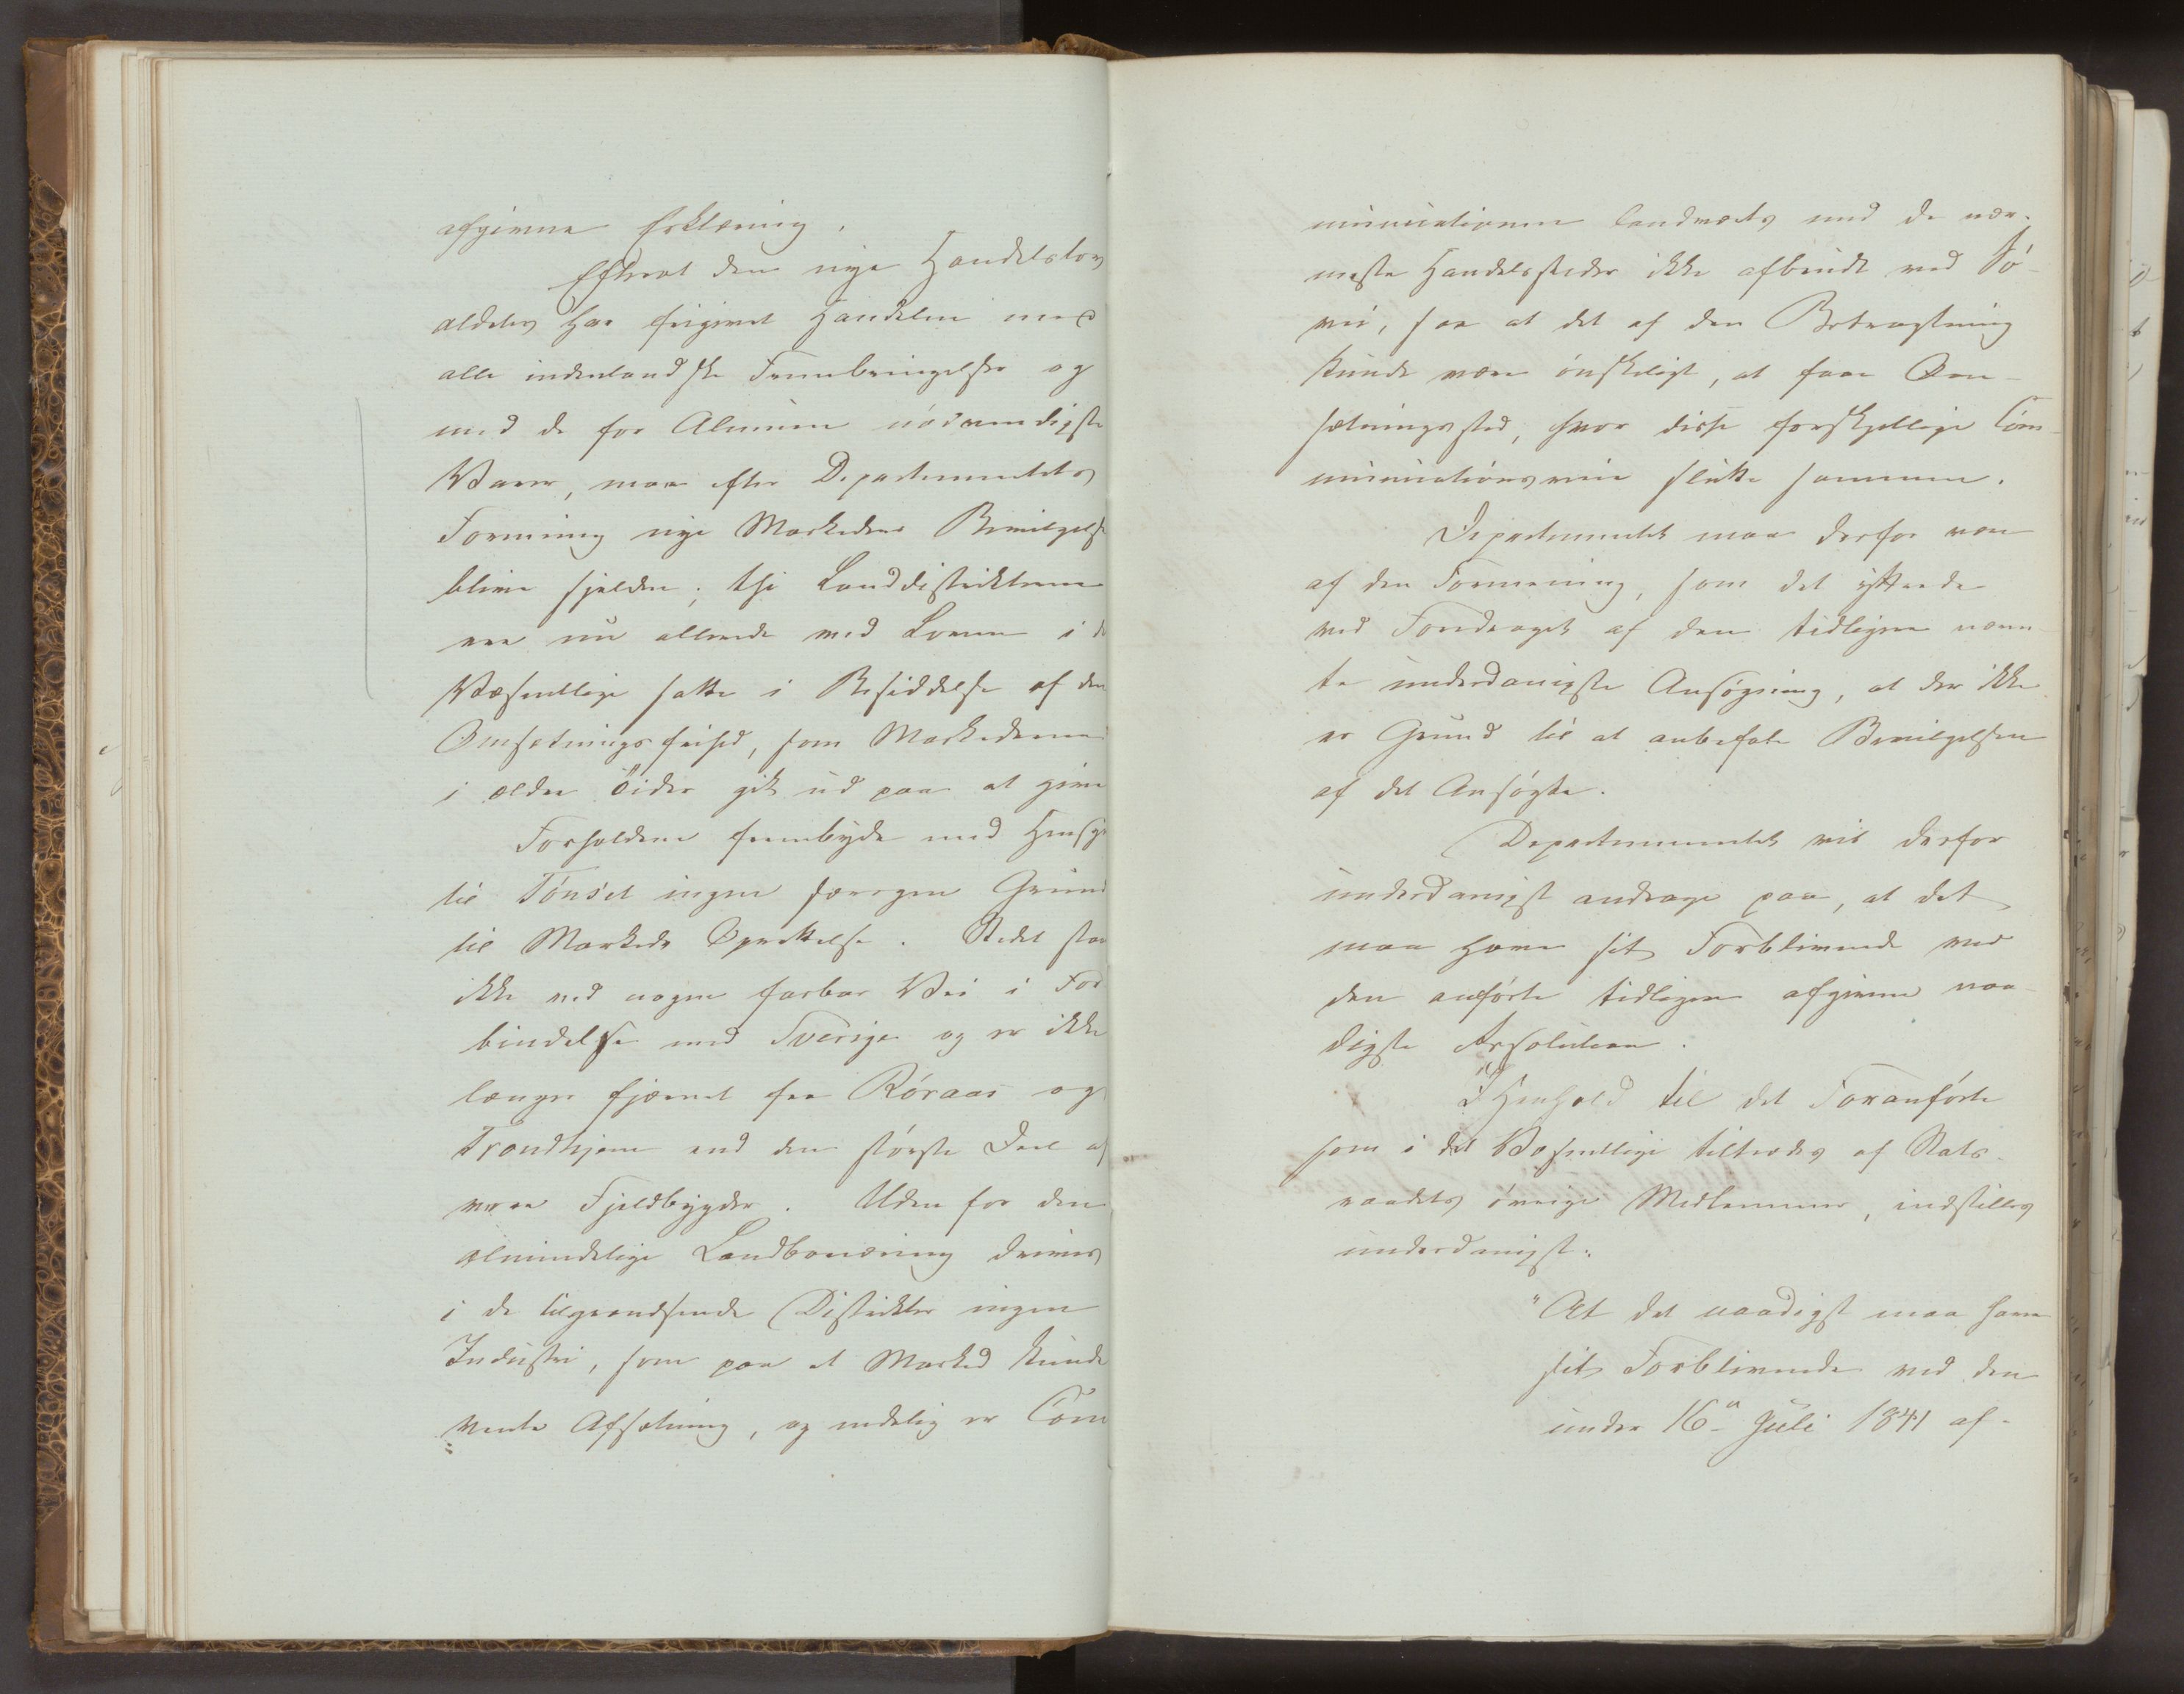 afgivne Erklæring.
Efterat den nye Handelslov
aldeles har frigivet Handelen med
alle indenlandske Frembringelser og
med de for Almuen nødvendigste
Varer, maa efter Departementets
Formening nye Markeders Bevilgelse
blive sjelden; thi Landdistrikterne
ere nu allerede ved Loven i d
Væsentlige satte i Besiddelse af den
Omsætningsfrihed, som Markederne
i ældre Tider gik ud paa at give
Forholdene frembyde med Hensyn
til Tönset ingen særegen Grund
til Markeds Oprettelse. Stedet staar
ikke ved nogen farbar Vei i For
bindelse med Sverige og er ikke
længer fjærnet fra Röraas og
Trondhjem end den störste Deel af
vore Fjeldbygder. Uden for den
almindelige Landbonæring drives
i de tilgrændsende Distrikter ingen
Industri, som paa et Marked kunde
vente Afsætning, og endelig er Com
municationen landværts med de nær-
meste Handelssteder ikke afbrudt ved Sö-
vei, saa at det af den Betragtning
kunde være önskeligt, at faae Om-
sætningssted, hvor disse forskjellige Com-
municationsveie stötte sammen.
Departementet maa derfor være
af den Formening, som det yttrede
ved Foredraget af den tidligere nævn-
te underdanigste Ansögning, at der ikke
er Grund til at anbefale Bevilgelsen
af det Ansögte.
Departementet vil derfor
underdanigst andrage paa, at det
maa have sit Forblivende ved
den anförte tidligere afgivne naa-
digste Resolution.
I Henhold til det Foranförte
som i det Væsentlige tiltrædes af Stats-
raadets övrige Medlemmer, indstilles
underdanigst:
"At det naadigst maa have
sit Forblivende ved den
under 16de Juli 1841 af-